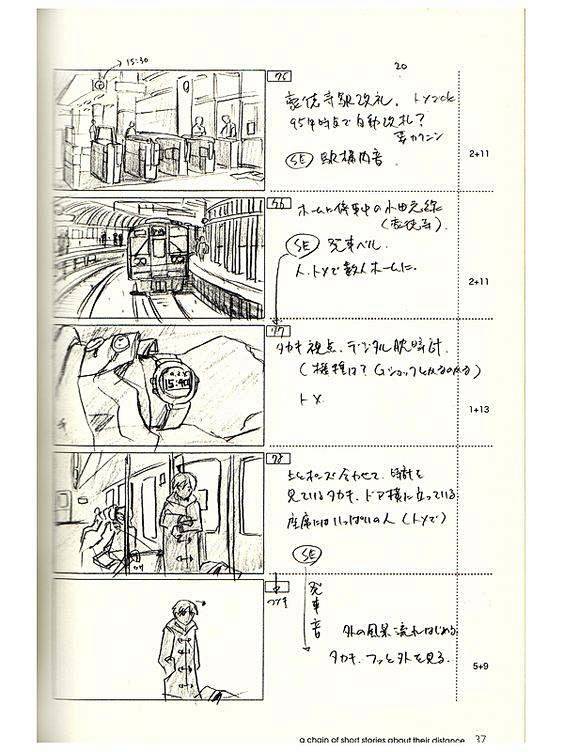 15:30
20
豪徳寺駅改札。トメ
95年時点で自動改札?
要カクニン
SE 駅構内音
2+11
76
ホームに停車中の小田急線
(豪徳寺).
SE 発車ベル.
人、トメで数人ホームに.
2+11
77
タカキ視点.デジタル腕時計.
(機種は? Gショック
トメ
15:40
1+13
78
ポーズ合わせて.時計を
見ているタカキ.ドア横に立っている.
座席にはいっぱいの人(トメで)
SE
つづき
発車音
外の風景流れはじめる
タカキ、フッと外を見る.
5+9
a chain of short stories about their distance 37